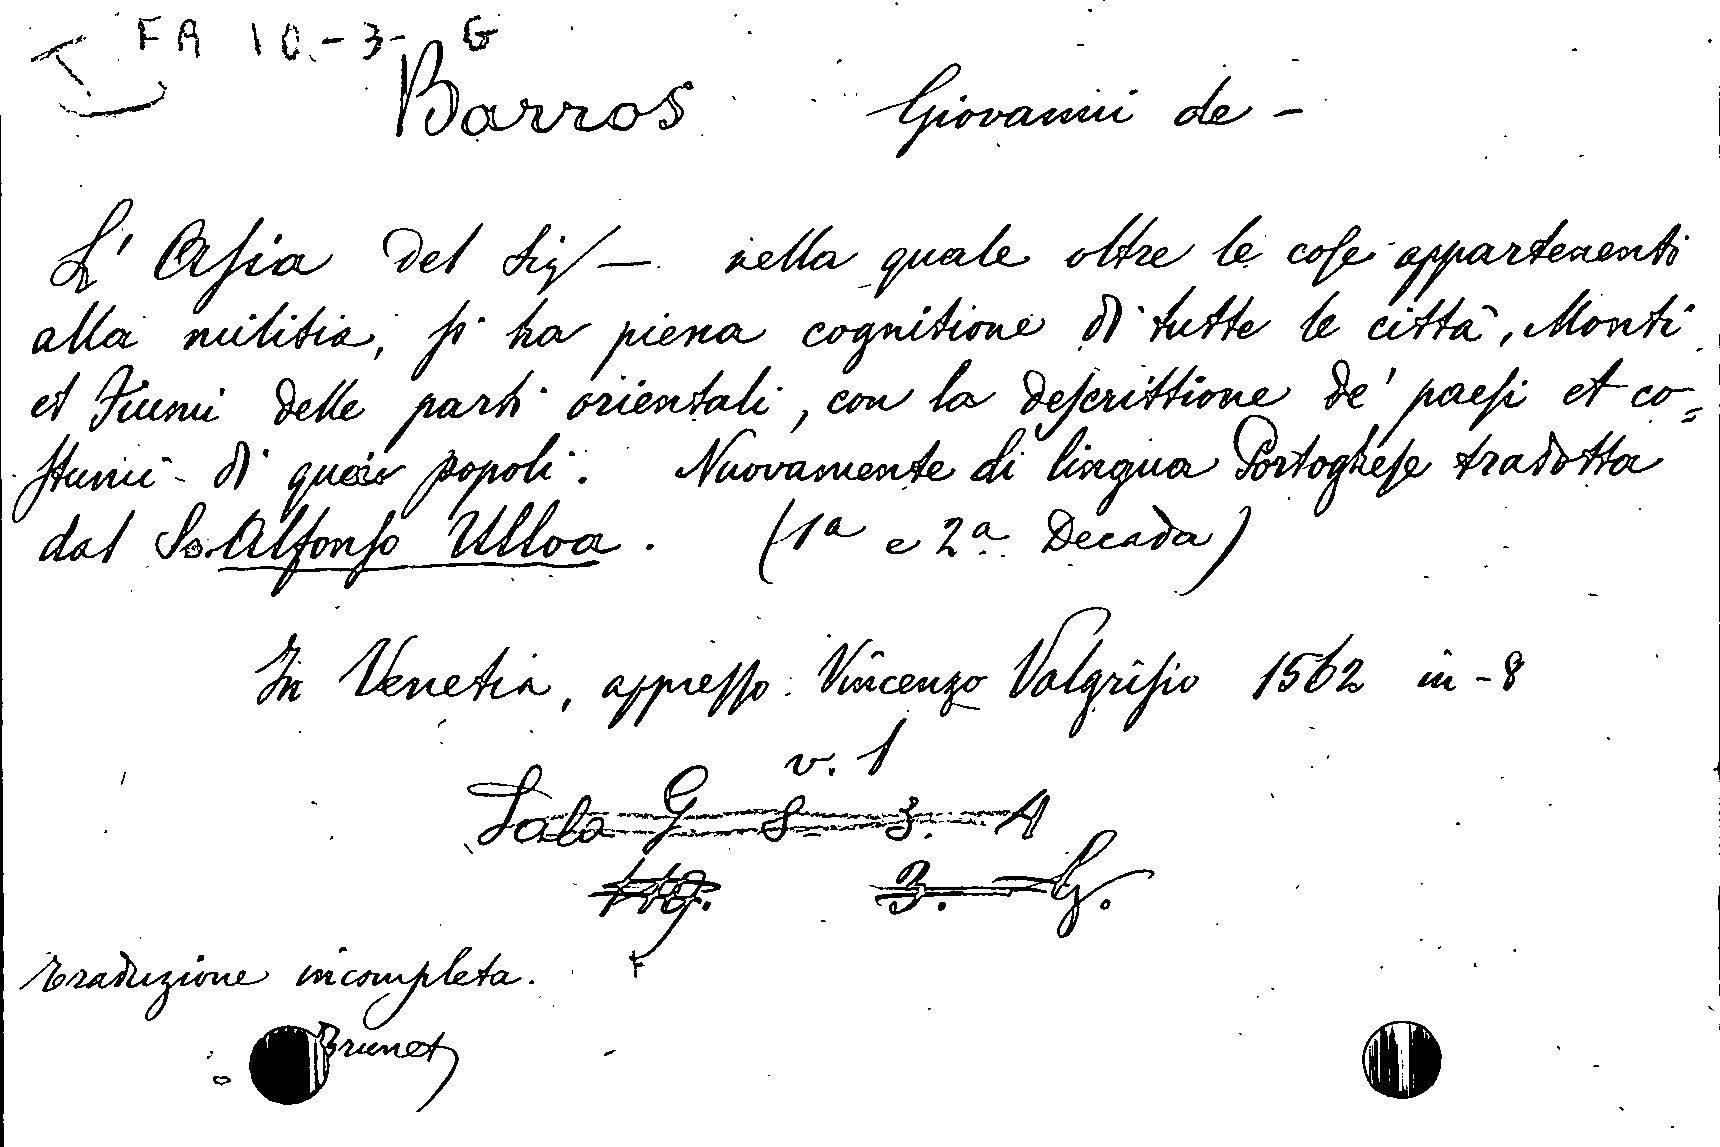 FA 10-3- G
Barros Giovanni de -
L' Asia del Sig — nella quale oltre le cose appartenenti
alla militia, si ha piena cognitione di tutte le città, Monti
et Fiumi delle parti orientali, con la descrittione de' paesi et co=
stumi di popoli. Nuovamente di lingua Portoghese tradotta
dal S. Alfonso Ulloa. (1a e 2a Decada)
In Venetia, appresso Vincenzo Valgrisio 1562 in-8
v. 1
Sala G 8 3. A
3. G.
traduzione incompleta.
F
Brunet